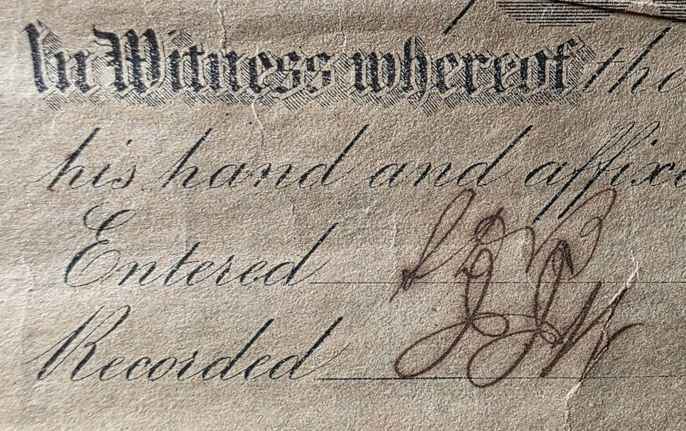 In Witness whereof the
his hand and affixe
Entered
Recorded